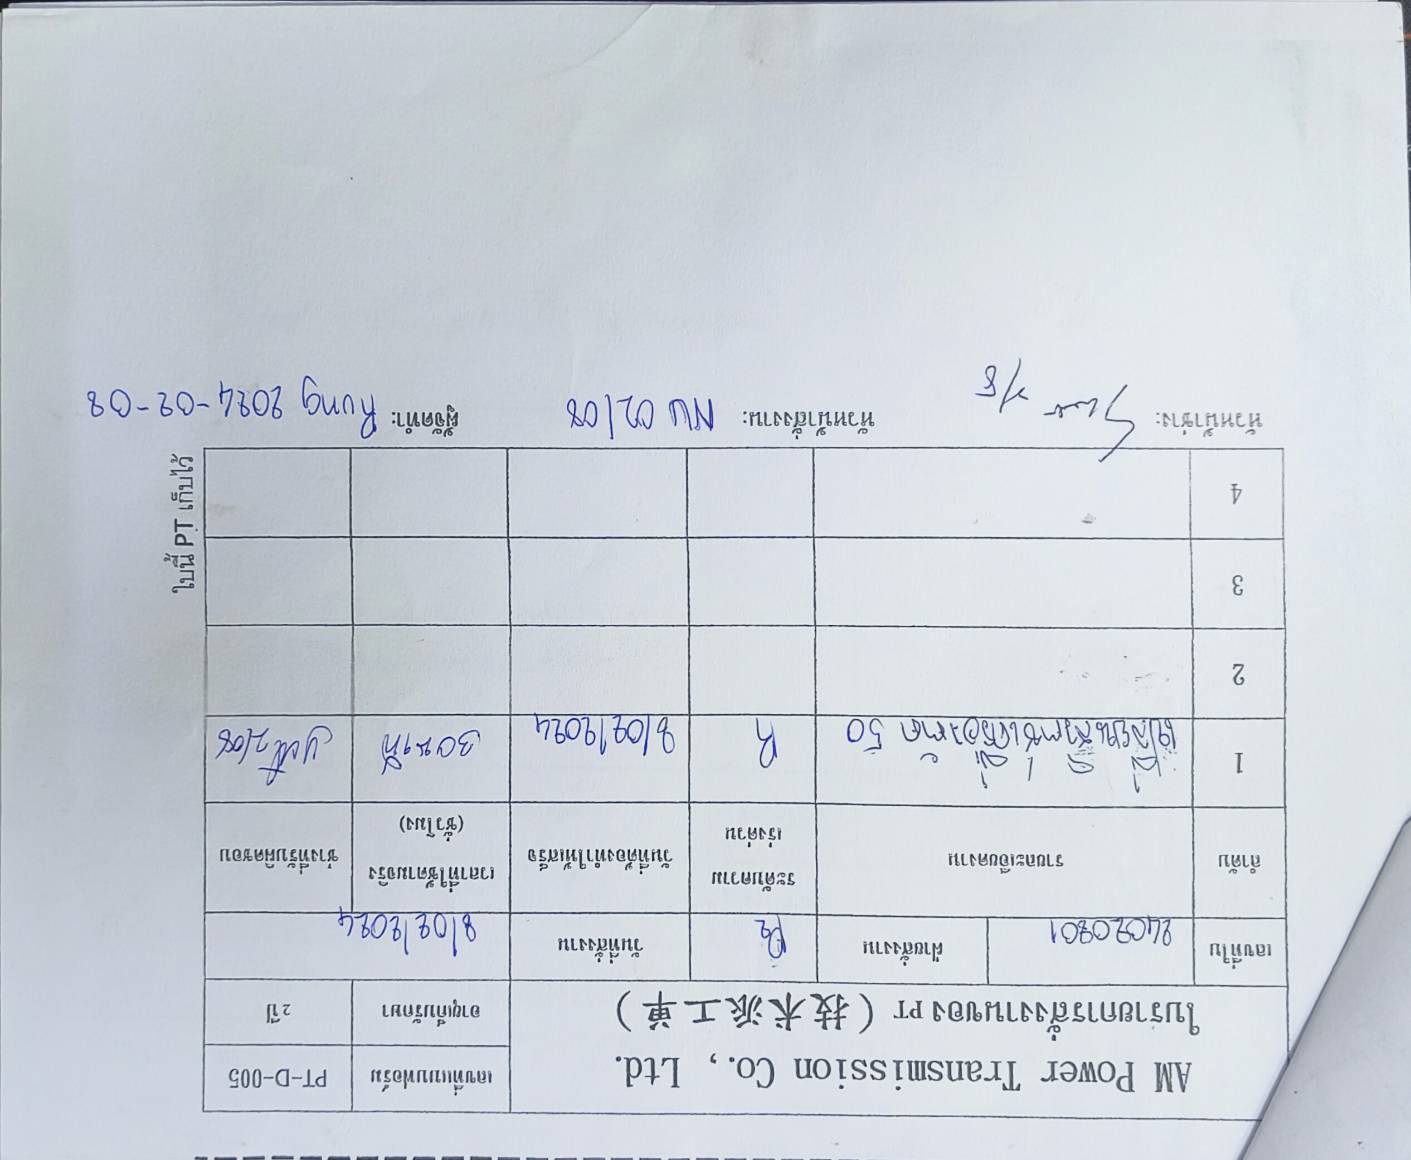 AM Power Transmission Co., Ltd.
ใบรายการสั่งงานของ PT (技术派工单)
เลขที่แบบฟอร์ม PT-D-005
อายุเก็บรักษา 2 ปี
เลขที่ใบ 24020801 ฝ่ายสั่งงาน P2 วันที่สั่งงาน 8/02/2024
ลำดับ รายละเอียดงาน ระดับความเร่งด่วน วันที่ต้องทำให้เสร็จ เวลาที่ใช้ตามจริง (ชั่วโมง) ช่างที่รับผิดชอบ
1 เปลี่ยนสวิตช์เครื่องตัด 50 R 8/02/2024 30 นาที 2/08
2
3
4
ใบนี้ PT เก็บไว้
หัวหน้าช่าง: 2/8 หัวหน้าสั่งงาน: NU 02/08 ผู้จัดทำ: Rung 2024-02-08